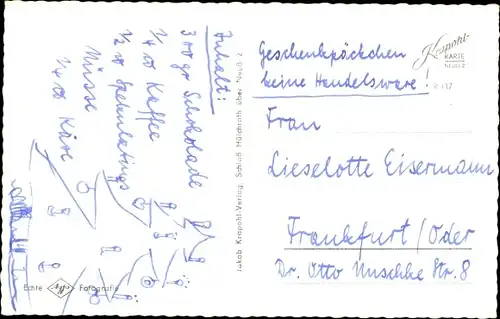 Inhalt:
300 gr Schokolade
1/4 Kaffee
1/2 Spekulatius
Nüsse
1/4 Käse
Echte Agfa Fotografie
Jakob Krapohl-Verlag, Schloß Hülchrath über Neuß 2
Geschenkpäckchen
keine Handelsware!
Krapohl-
KARTE
Frau
Lieselotte Eisermann
Frankfurt/Oder
Dr. Otto Nuschke Str. 8